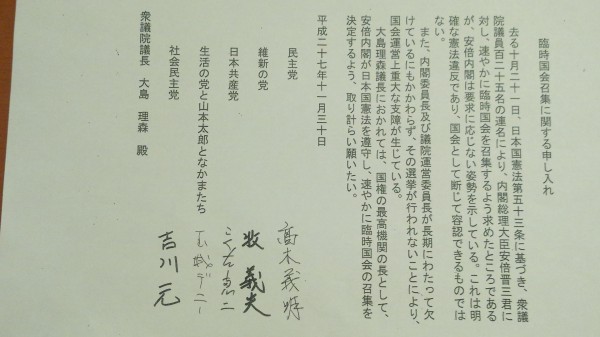 臨時国会召集に関する申し入れ
去る十月二十一日、日本国憲法第五十三条に基づき、衆議
院議員百二十五名の連名により、内閣総理大臣安倍晋三君に
対し、速やかに臨時国会を召集するよう求めたところである
が、安倍内閣は要求に応じない姿勢を示している。これは明
確な憲法違反であり、国会として断じて容認できるものでは
ない。
また、内閣委員長及び議院運営委員長が長期にわたって欠
けているにもかかわらず、その選挙が行われないことにより、
国会運営上重大な支障が生じている。
大島理森議長におかれては、国権の最高機関の長として、
安倍内閣が日本国憲法を遵守し、速やかに臨時国会の召集を
決定するよう、取り計らい願いたい。
平成二十七年十一月三十日
民主党 高木義明
維新の党 牧義夫
日本共産党 こくた恵二
生活の党と山本太郎となかまたち 玉城デニー
社会民主党 吉川元
衆議院議長 大島 理森 殿